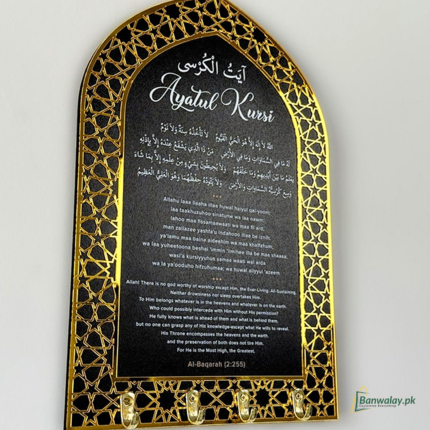 آيَتُ الْكُرْسِى
Ayatul Kursi
اللهُ لَا إِلٰهَ إِلَّا هُوَ الْحَيُّ الْقَيُّومُ لَا تَأْخُذُهُ سِنَةٌ وَلَا نَوْمٌ
لَهُ مَا فِي السَّمَاوَاتِ وَمَا فِي الْأَرْضِ مَن ذَا الَّذِي يَشْفَعُ عِندَهُ إِلَّا بِإِذْنِهِ
يَعْلَمُ مَا بَيْنَ أَيْدِيهِمْ وَمَا خَلْفَهُمْ وَلَا يُحِيطُونَ بِشَيْءٍ مِّنْ عِلْمِهِ إِلَّا بِمَا شَاءَ
وَسِعَ كُرْسِيُّهُ السَّمَاوَاتِ وَالْأَرْضَ وَلَا يَئُودُهُ حِفْظُهُمَا وَهُوَ الْعَلِيُّ الْعَظِيمُ
Allahu laaa ilaaha illaa huwal haiyul qai-yoom;
laa taakhuzuhoo sinatunw wa laa nawm;
lahoo maa fissamaawaati wa maa fil ard;
man zallazee yashfa'u indahooo illaa be iznih;
ya'lamu maa baina aideehim wa maa khalfahum;
wa laa yuheetoona beshai 'immin 'ilmihee illa be maa shaaa;
wasi'a kursiyyuhus samaa waati wal arda
wa la ya'ooduho hifzuhumaa; wa huwal aliyyul 'azeem
Allah! There is no god worthy of worship except Him, the Ever-Living, All-Sustaining.
Neither drowsiness nor sleep overtakes Him.
To Him belongs whatever is in the heavens and whatever is on the earth.
Who could possibly intercede with Him without His permission?
He fully knows what is ahead of them and what is behind them,
but no one can grasp any of His knowledge-except what He wills to reveal.
His Throne encompasses the heavens and the earth,
and the preservation of both does not tire Him.
For He is the Most High, the Greatest.
Al-Baqarah (2:255)
Banwalay.pk